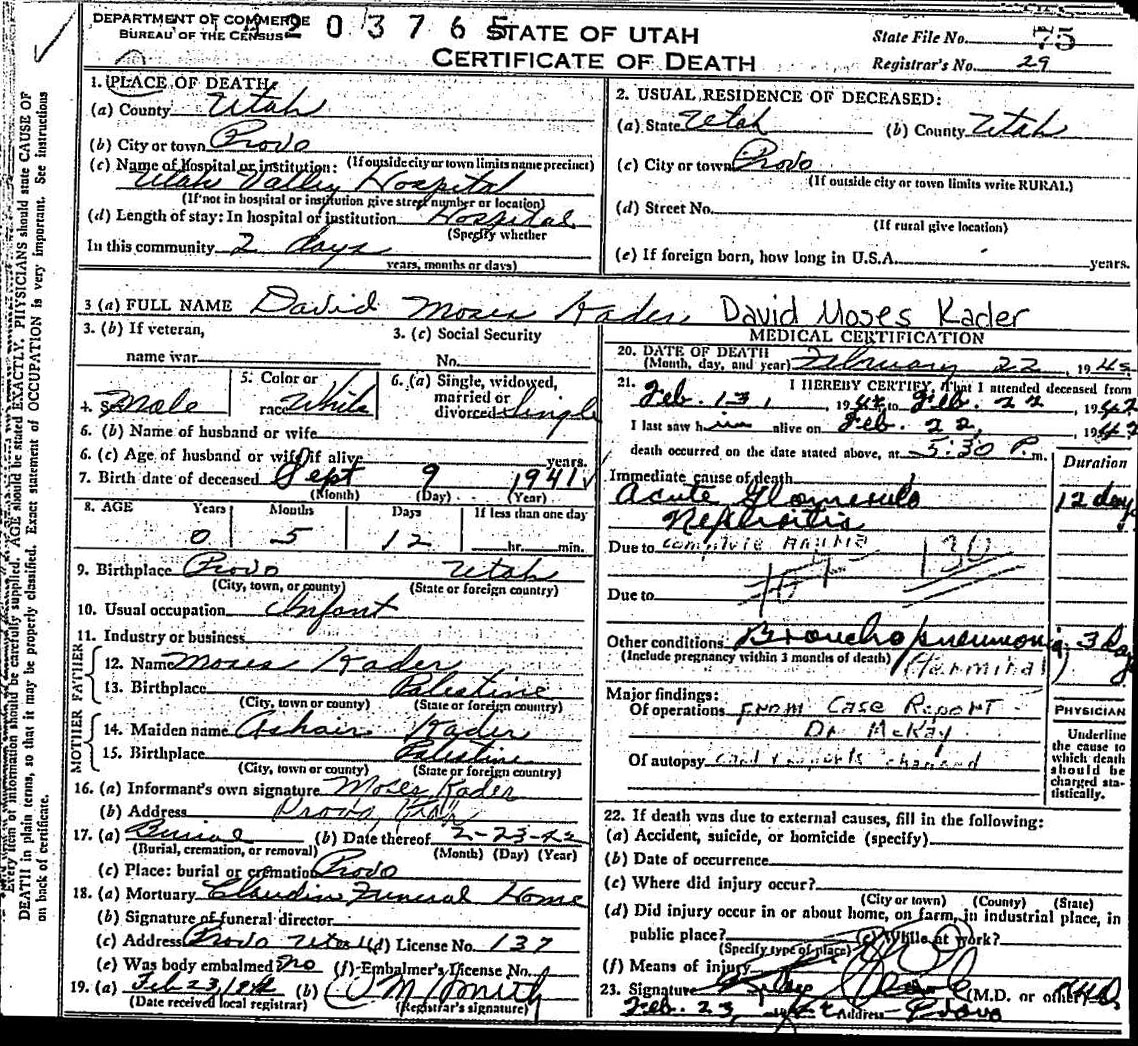 DEPARTMENT OF COMMERCE
BUREAU OF THE CENSUS
203765
STATE OF UTAH
CERTIFICATE OF DEATH
State File No. 75
Registrar's No. 29
1. PLACE OF DEATH:
(a) County Utah
(b) City or town Provo
(If outside city or town limits name precinct)
(c) Name of hospital or institution:
Utah Valley Hospital
(If not in hospital or institution give street number or location)
(d) Length of stay: In hospital or institution Hospital
(Specify whether
In this community 2 days
years, months or days)
2. USUAL RESIDENCE OF DECEASED:
(a) State Utah (b) County Utah
(c) City or town Provo
(If outside city or town limits write RURAL)
(d) Street No.
(If rural give location)
(e) If foreign born, how long in U.S.A. years.
3 (a) FULL NAME David Moses Kader David Moses Kader
3. (b) If veteran,
name war
3. (c) Social Security
No.
4. Sex Male
5. Color or
race White
6. (a) Single, widowed,
married or
divorced Single
6. (b) Name of husband or wife
6. (c) Age of husband or wife if alive years.
7. Birth date of deceased Sept 9 1941
(Month) (Day) (Year)
8. AGE Years Months Days If less than one day
0 5 12 hr. min.
9. Birthplace Provo Utah
(City, town, or county) (State or foreign country)
10. Usual occupation Infant
11. Industry or business
FATHER
12. Name Moses Kader
13. Birthplace Palestine
(City, town or county) (State or foreign country)
MOTHER
14. Maiden name Kader
15. Birthplace Palestine
(City, town or county) (State or foreign country)
16. (a) Informant's own signature Moses Kader
(b) Address Provo, Utah
17. (a) Burial (b) Date thereof 2-23-42
(Burial, cremation, or removal) (Month) (Day) (Year)
(c) Place: burial or cremation Provo
18. (a) Mortuary Claudin Funeral Home
(b) Signature of funeral director
(c) Address Provo Utah (d) License No. 137
(e) Was body embalmed? No (f) Embalmer's License No.
19. (a) Feb 23, 1942 (b)
(Date received local registrar) (Registrar's signature)
MEDICAL CERTIFICATION
20. DATE OF DEATH
(Month, day, and year) February 22, 1942
21. I HEREBY CERTIFY, That I attended deceased from
Feb. 13, 1942 to Feb. 22 1942
I last saw him alive on Feb. 22, 1942
death occurred on the date stated above, at 5:30 P.m.
Duration
Immediate cause of death
Acute Glomerulo 12 days
Nephritis
Due to
130
Due to
Other conditions Bronchopneumonia 3 Day
(Include pregnancy within 3 months of death) (terminal)
Major findings:
Of operations From Case Report
Dr McKay
Of autopsy
PHYSICIAN
Underline
the cause to
which death
should be
charged sta-
tistically.
22. If death was due to external causes, fill in the following:
(a) Accident, suicide, or homicide (specify)
(b) Date of occurrence
(c) Where did injury occur?
(City or town) (County) (State)
(d) Did injury occur in or about home, on farm, in industrial place, in
public place? (e) While at work?
(Specify type of place)
(f) Means of injury
23. Signature (M.D. or other) M.D.
Feb. 23, 1942 Address Provo
Every item of information should be carefully supplied. AGE should be stated EXACTLY. PHYSICIANS should state CAUSE OF
DEATH in plain terms, so that it may be properly classified. Exact statement of OCCUPATION is very important. See instructions
on back of certificate.